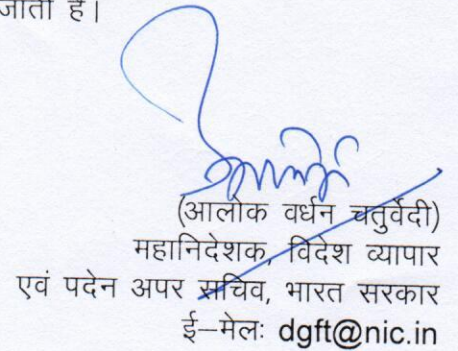 जाती है।
(आलोक वर्धन चतुर्वेदी)
महानिदेशक, विदेश व्यापार
एवं पदेन अपर सचिव, भारत सरकार
ई–मेलः dgft@nic.in